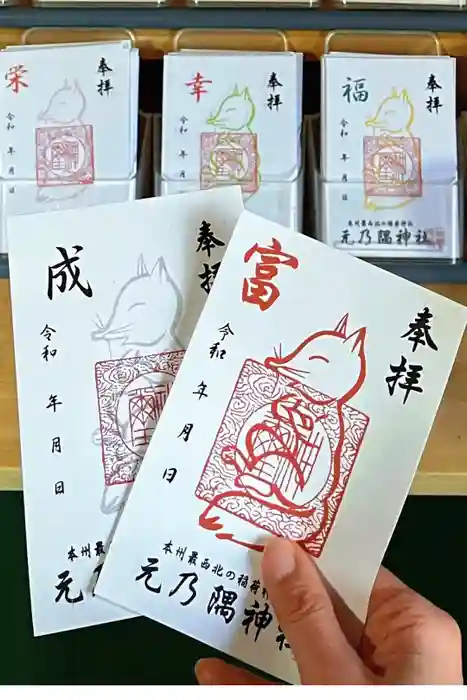 栄
奉拝
令和 年 月 日
幸
奉拝
令和 年 月 日
福
奉拝
令和 年 月 日
本州最西北の稲荷神社
元乃隅神社
成
奉拝
令和 年 月 日
本州最
元乃
富
奉拝
令和 年 月 日
本州最西北の稲荷神
元乃隅神社